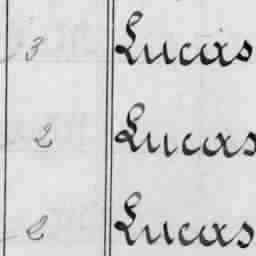 3 Lucas
2 Lucas
2 Lucas